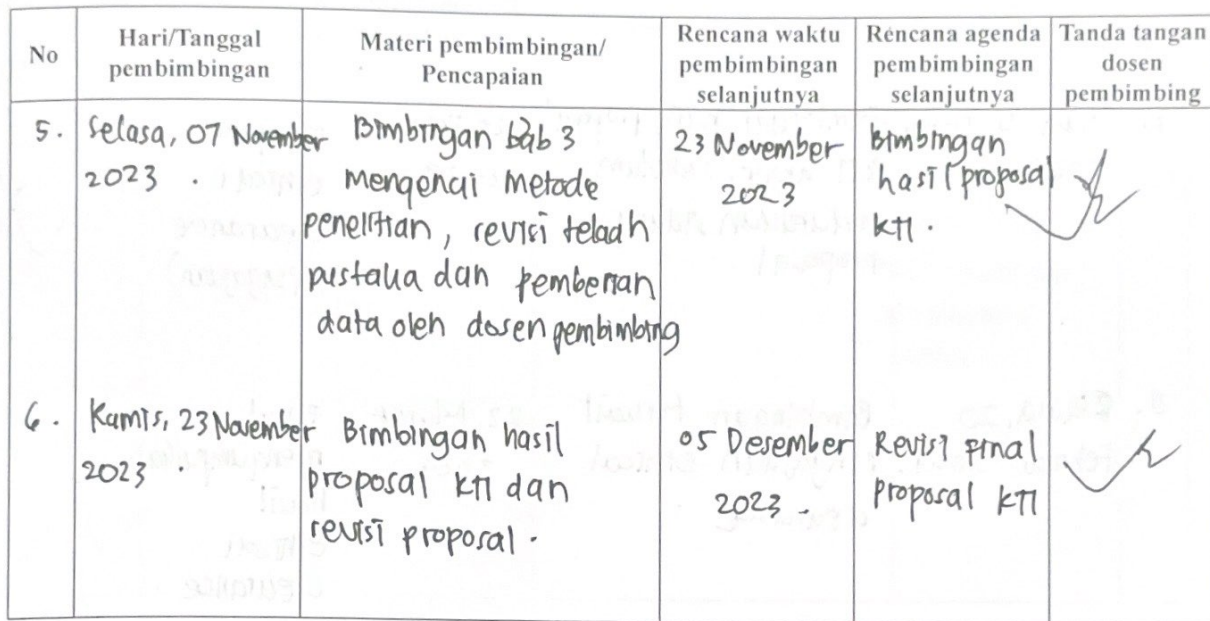 No
Hari/Tanggal
pembimbingan
Materi pembimbingan/
Pencapaian
Rencana waktu
pembimbingan
selanjutnya
Rencana agenda
pembimbingan
selanjutnya
Tanda tangan
dosen
pembimbing
5.
Selasa, 07 November
2023 .
Bimbingan bab 3
mengenai metode
penelitian, revisi telaah
pustaka dan pemberian
data oleh dosen pembimbing
23 November
2023
Bimbingan
hasil proposal
KTI.
6.
Kamis, 23 November
2023 .
Bimbingan hasil
proposal KTI dan
revisi proposal.
05 Desember
2023.
Revisi final
proposal KTI